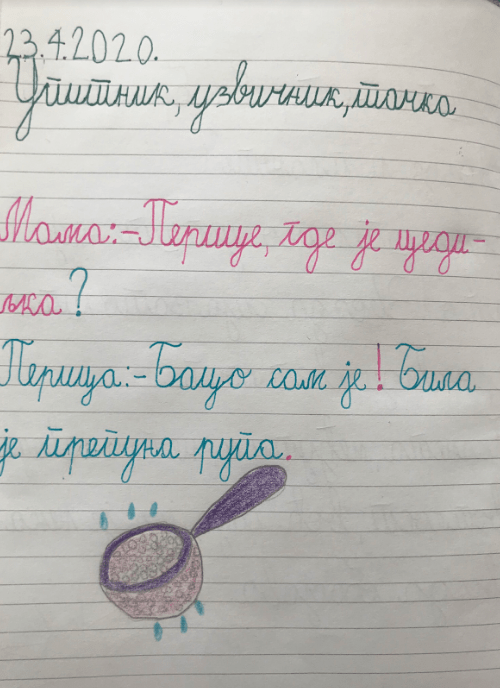 23.4.2020.
Упитник, узвичник, тачка
Мама:-Перице, где је цеди-
љка?
Перица:-Бацио сам је! Била
је препуна рупа.